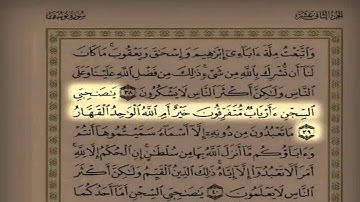 الجزء الثاني عشر
سورة يوسف
وَاتَّبَعْتُ مِلَّةَ ءَابَآءِىٓ إِبْرَٰهِيمَ وَإِسْحَٰقَ وَيَعْقُوبَ مَا كَانَ
لَنَآ أَن نُّشْرِكَ بِٱللَّهِ مِن شَىْءٍ ذَٰلِكَ مِن فَضْلِ ٱللَّهِ عَلَيْنَا وَعَلَى
ٱلنَّاسِ وَلَٰكِنَّ أَكْثَرَ ٱلنَّاسِ لَا يَشْكُرُونَ ٣٨ يَٰصَىٰحِبَىِ
ٱلسِّجْنِ ءَأَرْبَابٌ مُّتَفَرِّقُونَ خَيْرٌ أَمِ ٱللَّهُ ٱلْوَٰحِدُ ٱلْقَهَّارُ
٣٩ مَا تَعْبُدُونَ مِن دُونِهِۦٓ إِلَّآ أَسْمَآءً سَمَّيْتُمُوهَآ أَنتُمْ
وَءَابَآؤُكُم مَّآ أَنزَلَ ٱللَّهُ بِهَا مِن سُلْطَٰنٍ إِنِ ٱلْحُكْمُ إِلَّا لِلَّهِ
أَمَرَ أَلَّا تَعْبُدُوٓا۟ إِلَّآ إِيَّاهُ ذَٰلِكَ ٱلدِّينُ ٱلْقَيِّمُ وَلَٰكِنَّ أَكْثَرَ
ٱلنَّاسِ لَا يَعْلَمُونَ ٤٠ يَٰصَىٰحِبَىِ ٱلسِّجْنِ أَمَّآ أَحَدُكُمَا